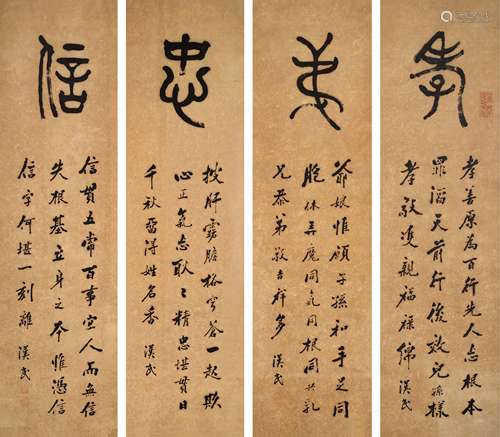 孝
孝善原為百行先人忘根本
罪滔天前行後效兒孫樣
孝敬雙親福祿綿 漢民
弟
爺娘惟願子孫和手足同
胞休弄魔同氣同根同共乳
兄恭弟敬吉祥多 漢民
忠
披肝露膽格穹蒼一起欺
心正氣亡耿々精忠堪貫日
千秋留得姓名香 漢民
信
信貫五常百事宜人而無信
失根基立身之本惟憑信
信字何堪一刻離 漢民